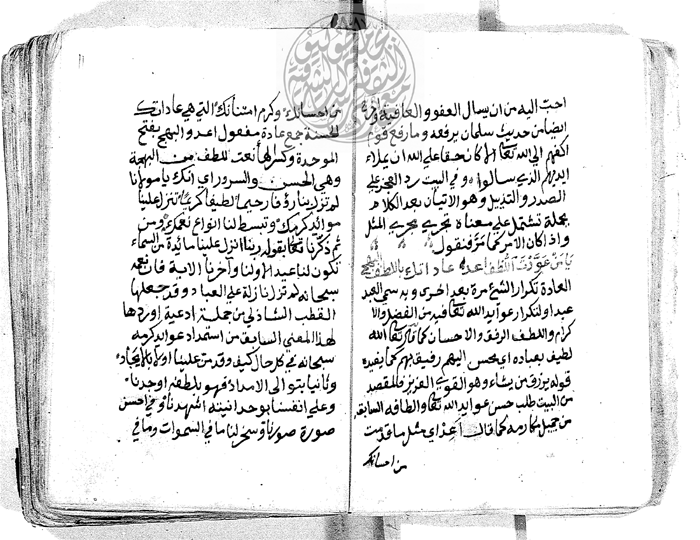 احب اليه من ان يسال العفو والعافية
ايضا من حديث سلمان يرفعه وما رفع قوم
اكفهم الى الله تعالى الا كان حقا على الله ان يملاء
ايديهم الذي سالوا وفي البيت رد العجز على
الصدر والتذييل وهو الاتيان بعد الكلام
بجملة تشتمل على معناه تجري مجرى المثل
واذا كان الامر كما مر فنقول
يا من عودت اللطف اعد عاداتك باللطف البهج
العادة تكرار الشيء مرة بعد اخرى وبه سمي العيد
عيدا ولتكرار عوايد الله تعالى فيه من الفضل والا
كرام واللطف الرفق والاحسان كما قال تعالى الله
لطيف بعباده اي محسن اليهم رفيق بهم كما يفيده
قوله يرزق من يشاء وهو القوي العزيز فالمقصد
من البيت طلب حسن عوايد الله تعالى والطافه السابقة
من جميل مكارمه كما قال اعد اي مثل ما قدمت
من احسانك
من احسانك وكرم امتنانك التي هي عاداتك
الحسنة جمع عادة مفعول اعد والبهج بفتح
الموحدة وكسر الهاء نعت للطف من البهجة
وهي الحسن والسرور اي انك يا مولانا
لم تزل بنا رؤفا رحيما لطيفا كريما تنزل علينا
موائد كرمك وتبسط لنا انواع نعمك ومن
ثم ذكرنا تعالى بقوله ربنا انزل علينا مائدة من السماء
تكون لنا عيدا لاولنا وآخرنا الاية فان نعمه
سبحانه لم تزل نازلة على العباد وقد جعلها
القطب الشاذلي من جملة ادعية اوردها
لهذا المعنى السابق من استمداد عوايد كرمه
سبحانه في كل حال كيف وقد من علينا اولا بالايجاد
وثانيا بتوالي الامداد فهو بلطفه اوجدنا
وعلى انفسنا بوحدانيته اشهدنا وفي احسن
صورة صورنا وسخر لنا ما في السموات وما في